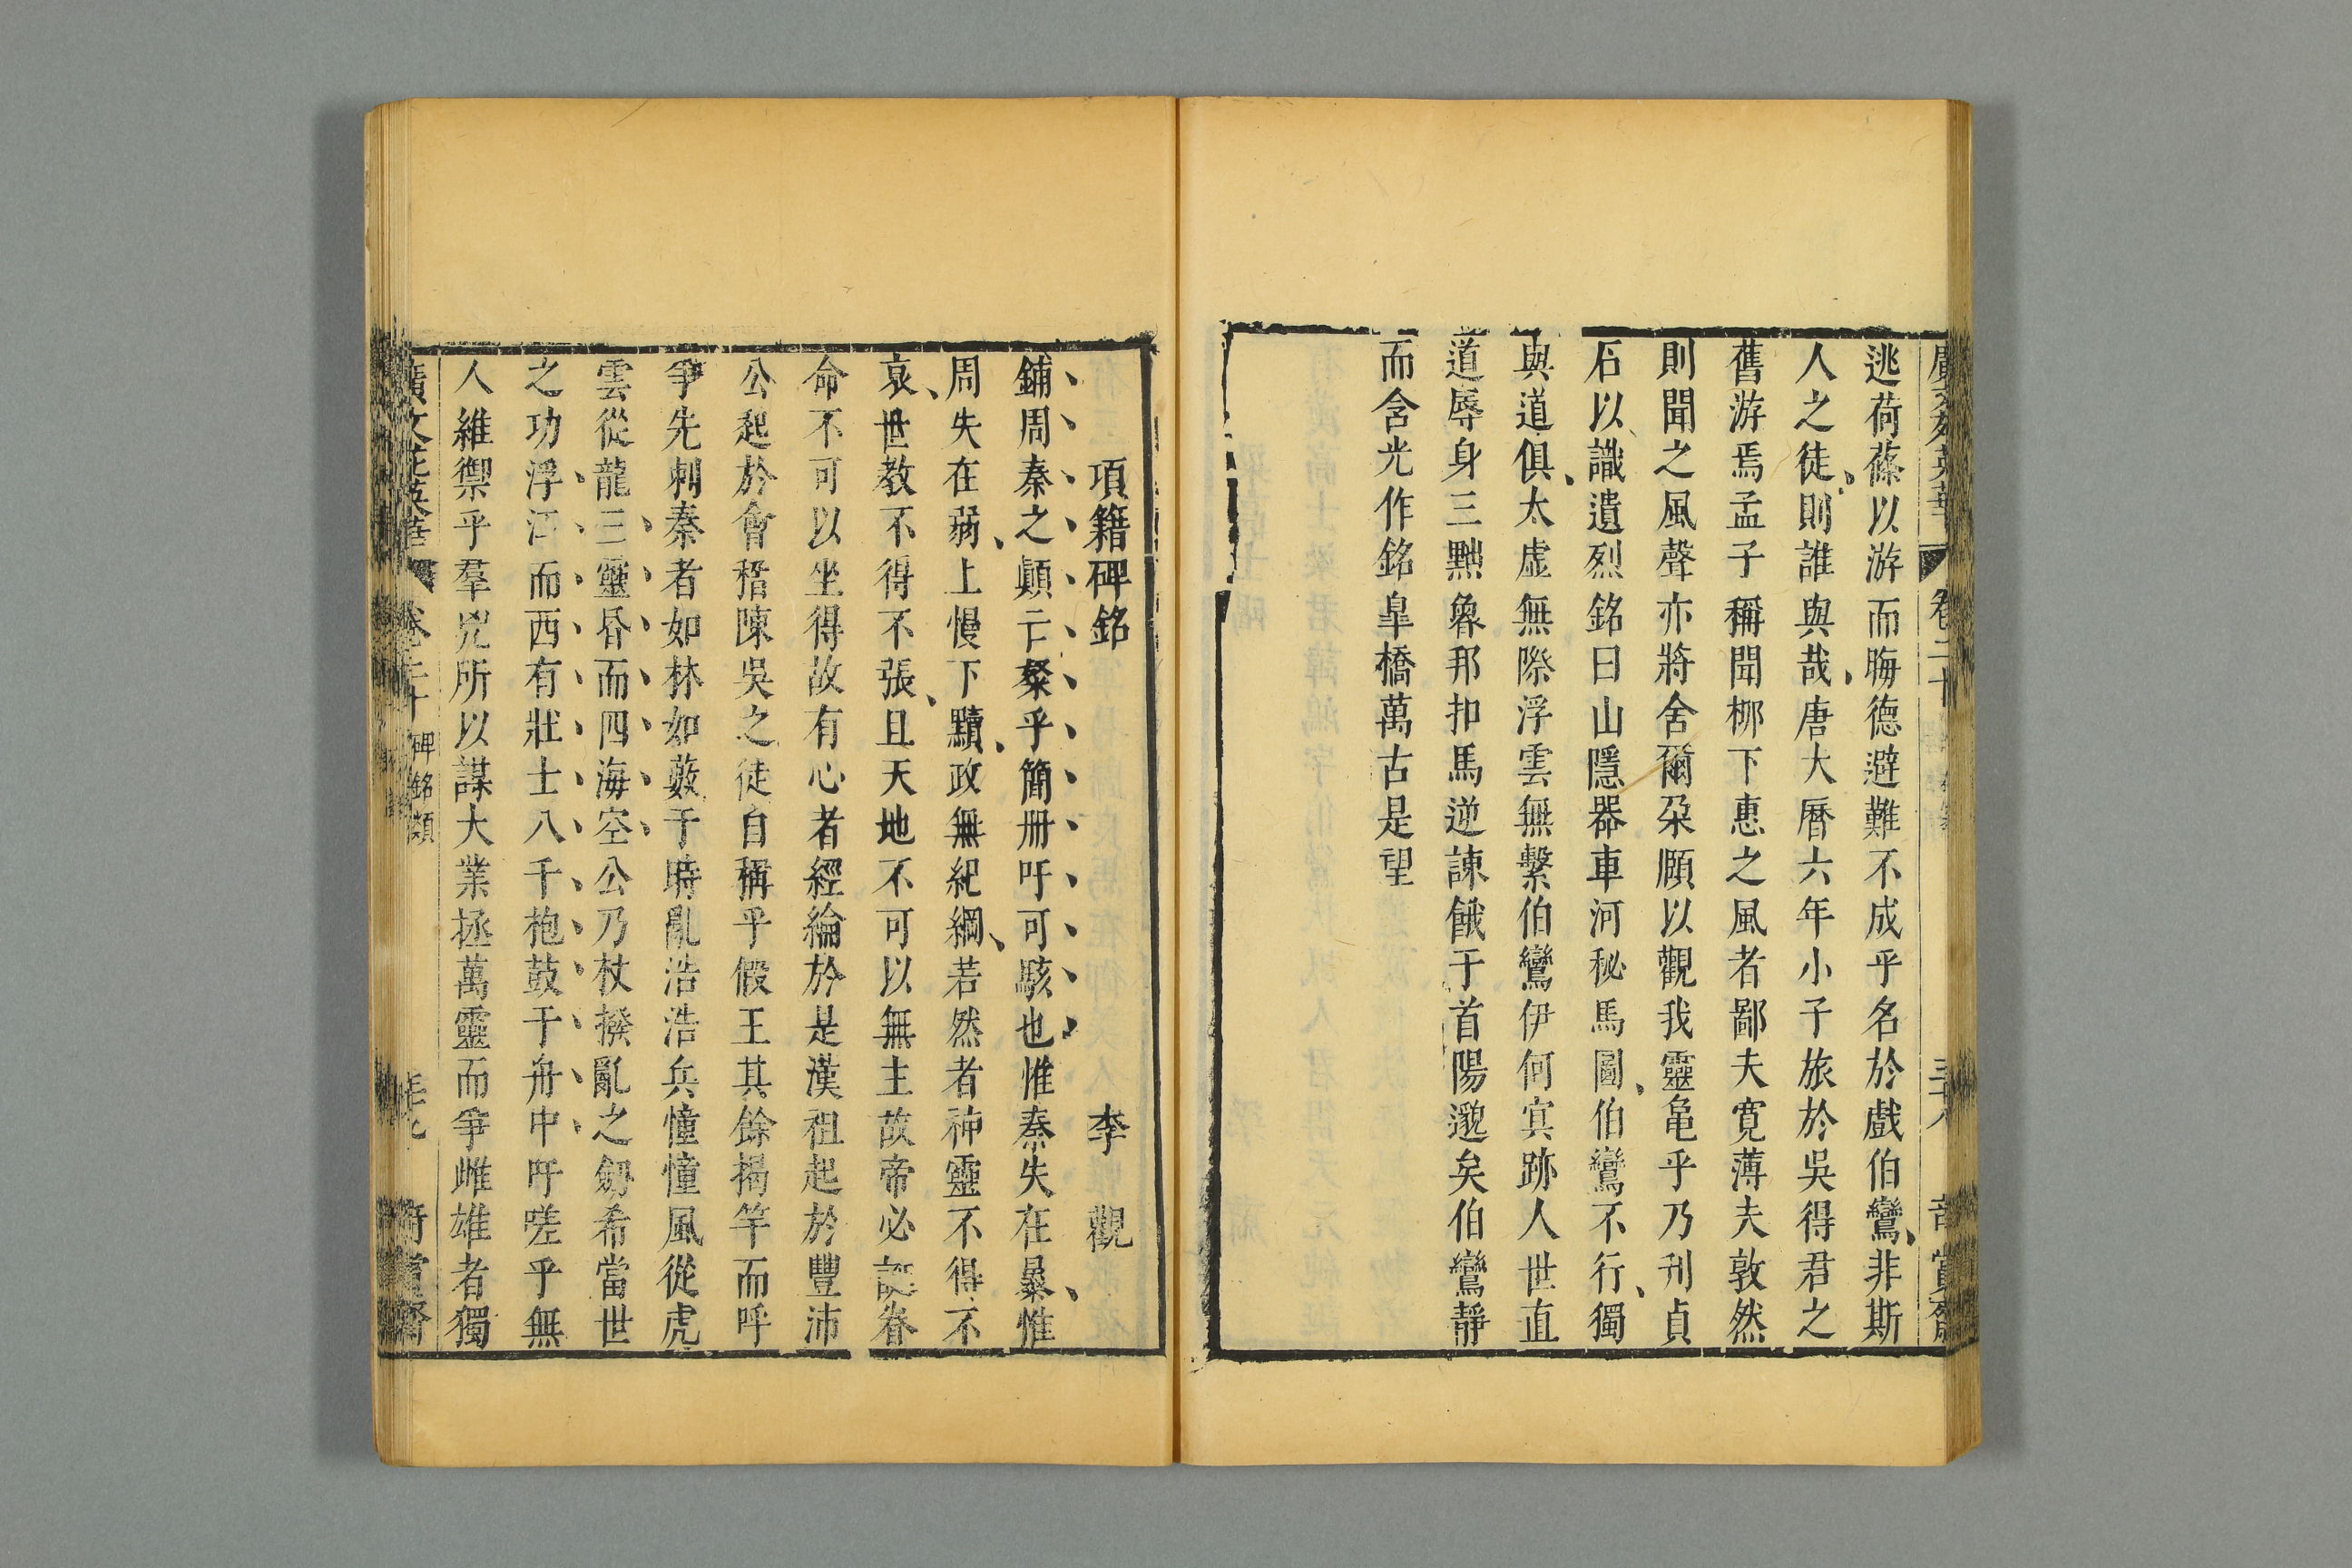 逃荷蓧以游而晦德避難不成乎名於戲伯鸞非斯
人之徒則誰與哉唐大曆六年小子旅於吳得君之
舊游焉孟子稱聞柳下惠之風者鄙夫寛薄夫敦然
則聞之風聲亦將舍爾朶願以觀我靈亀乎乃刊貞
石以識遺烈銘曰山隱器車河秘馬圖伯鸞不行獨
與道俱太虛無際浮雲無繫伯鸞伊何宾跡人世直
道辱身三黜魯邦扣馬逆諫餓于首陽邈矣伯鸞靜
而含光作銘皐橋萬古是望
項籍碑銘 李觀
鋪周秦之顛亡粲乎簡冊吁可駭也惟秦失在暴惟
周失在弱上慢下黷政無紀綱若然者神靈不得不
哀世教不得不張且天地不可以無主故帝必眷
命不可以坐得故有心者經綸於是漢祖起於豐沛
公起於會稽陳吳之徒自稱乎假王其餘揭竿而呼
爭先刺秦者如林如藪于時亂浩浩兵憧憧風從虎
雲從龍三靈昏而四海空公乃杖撥亂之劔希當世
之功浮江而西有壯士八千枹鼓于舟中吁嗟乎無
人維禦乎羣兇所以謀大業拯萬靈而爭雌雄者獨
廣文苑英華 卷二十 碑銘類